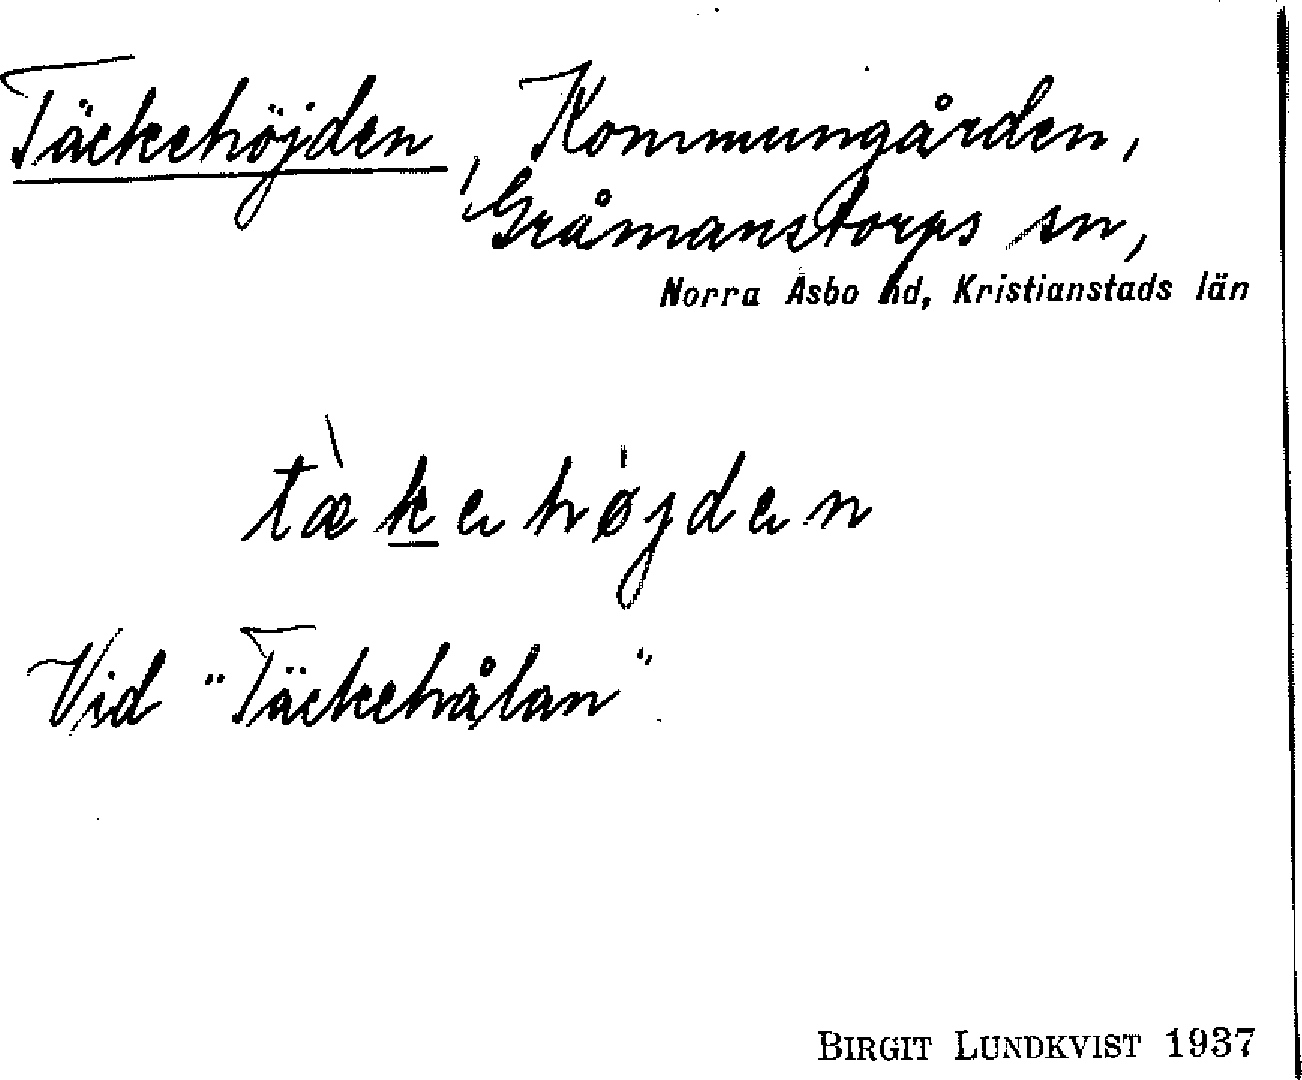 Täckehöjden, Kommungården,
Gråmanstorps sn,
Norra Åsbo hd, Kristianstads län
tæ̀kehøjden
Vid "Täckehålan".
BIRGIT LUNDKVIST 1937